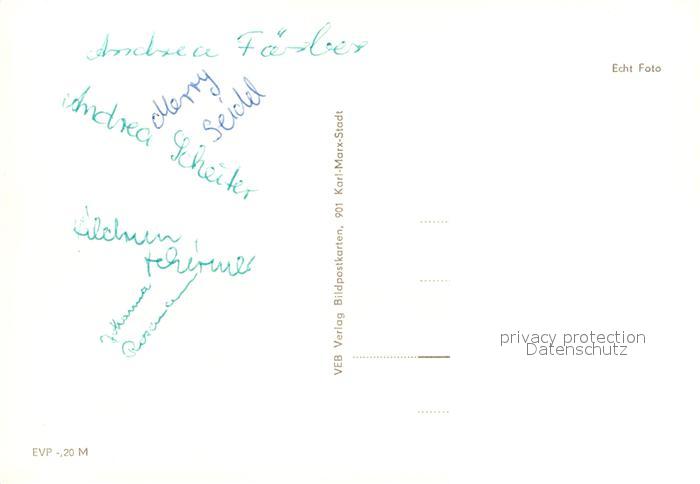 Andrea Färber
Echt Foto
Merry
Seidel
Andrea
Scheiter
VEB Verlag Bildpostkarten, 901 Karl-Marx-Stadt
Johanna
privacy protection
Datenschutz
EVP -,20 M